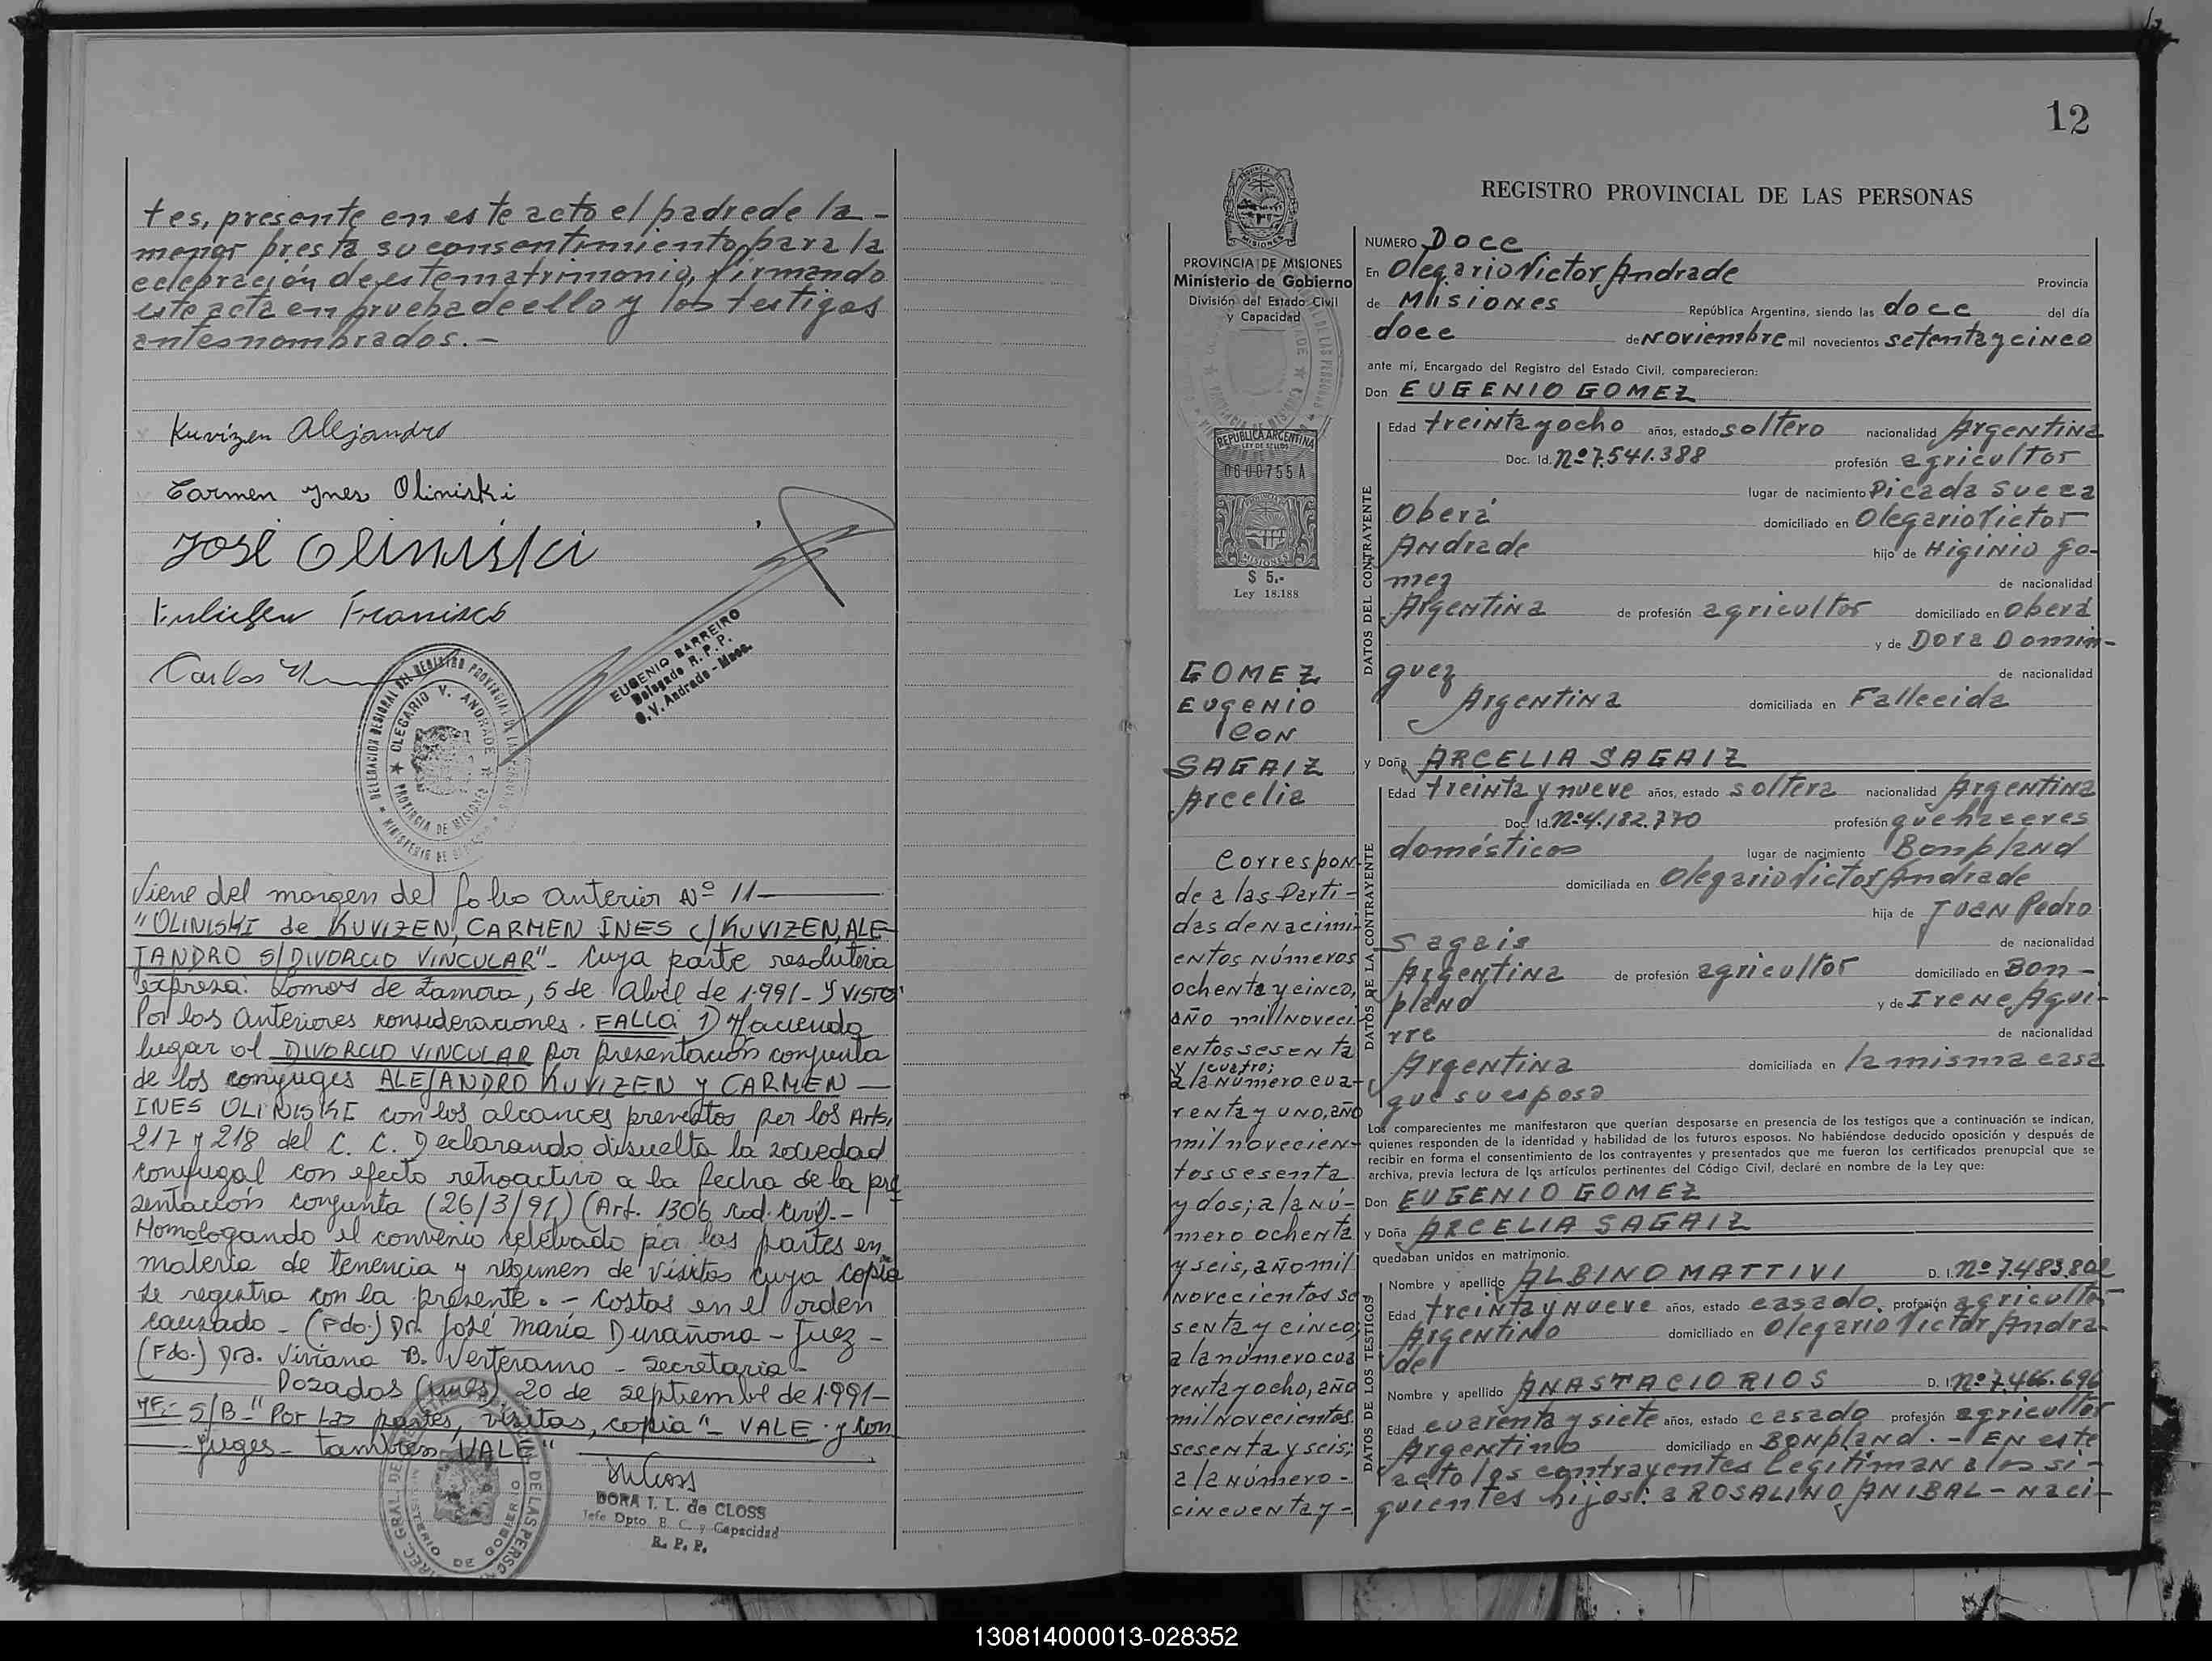 tes, presente en este acto el padre de la -
menor presta su consentimiento para la
celebración de este matrimonio, firmando
este acta en prueba de ello y los testigos
antes nombrados. -
Kuvizen Alejandro
Carmen Ynes Oliniski
José Oliniski
Francisco
Carlos
EUGENIO BARREIRO
Delegado R. P. P.
O. V. Andrade - Mnes.
DELEGACION REGIONAL DEL REGISTRO PROVINCIAL DE LAS PERSONAS
OLEGARIO V. ANDRADE
PROVINCIA DE MISIONES
MINISTERIO DE GOBIERNO
Viene del margen del folio anterior Nº 11
"OLINISKI de KUVIZEN, CARMEN INES C/KUVIZEN, ALE-
JANDRO S/DIVORCIO VINCULAR" - Cuya parte resolutiva
expresa: Lomas de Zamora, 5 de Abril de 1.991 - Y VISTO:
Por los anteriores consideraciones. FALLO: 1) Haciendo
lugar al DIVORCIO VINCULAR por presentación conjunta
de los conyuges ALEJANDRO KUVIZEN Y CARMEN
INES OLINISKI con los alcances previstos por los Arts.
217 y 218 del C. C. Declarando disuelta la sociedad
conyugal con efecto retroactivo a la fecha de la pre
sentación conjunta (26/3/91) (Art. 1306 Cod. Civil). -
Homologando el convenio celebrado por las partes en
materia de tenencia y régimen de visitas cuya copia
se registra con la presente. - Costas en el orden
causado - (Fdo.) Dr. José María Durañona - Juez -
(Fdo.) Dra. Viviana B. Verteramo - Secretaria -
Posadas (Mnes). 20 de septiembre de 1.991 -
S/B - "Por las partes, visitas, copia" - VALE - y con
juges - también VALE"
DORA I. L. de CLOSS
Jefe Dpto. E. C. y Capacidad
R. P. P.
12
REGISTRO PROVINCIAL DE LAS PERSONAS
MISIONES
PROVINCIA DE MISIONES
Ministerio de Gobierno
División del Estado Civil
y Capacidad
REPUBLICA ARGENTINA
LEY DE SELLOS
0600755A
MISIONES
$ 5.-
Ley 18.188
GOMEZ
Eugenio
CON
SAGAIZ
Arcelia
Correspon-
de a las Parti-
das de nacimi-
entos números
ochenta y cinco,
año mil noveci
entos sesenta
y cuatro;
a la número cua-
renta y uno, año
mil novecien-
tos sesenta
y dos; a la nú-
mero ochenta
y seis, año mil
novecientos se
senta y cinco;
a la número cua
renta y ocho, año
mil novecientos
sesenta y seis;
a la número -
cincuenta y -
NUMERO Doce
En Olegario Victor Andrade Provincia
de Misiones República Argentina, siendo las doce del día
doce de Noviembre mil novecientos setenta y cinco
ante mí, Encargado del Registro del Estado Civil, comparecieron:
Don EUGENIO GOMEZ
DATOS DEL CONTRAYENTE
Edad treinta y ocho años, estado soltero nacionalidad Argentina
Doc. Id. Nº 7.541.388 profesión agricultor
lugar de nacimiento Picada Sueca
Oberá domiciliado en Olegario Victor
Andrade hijo de Higinio Go-
mez de nacionalidad
Argentina de profesión agricultor domiciliado en Oberá
y de Dora Domin-
guez de nacionalidad
Argentina domiciliada en Fallecida
y Doña ARCELIA SAGAIZ
DATOS DE LA CONTRAYENTE
Edad treinta y nueve años, estado soltera nacionalidad Argentina
Doc. Id. Nº 4.182.770 profesión quehaceres
domésticos lugar de nacimiento Bonpland
domiciliada en Olegario Victor Andrade
hija de Juan Pedro
Sagais de nacionalidad
Argentina de profesión agricultor domiciliado en Bon-
pland y de Irene Agui-
rre de nacionalidad
Argentina domiciliada en la misma casa
que su esposo
Los comparecientes me manifestaron que querían desposarse en presencia de los testigos que a continuación se indican,
quienes responden de la identidad y habilidad de los futuros esposos. No habiéndose deducido oposición y después de
recibir en forma el consentimiento de los contrayentes y presentados que me fueron los certificados prenupcial que se
archiva, previa lectura de los artículos pertinentes del Código Civil, declaré en nombre de la Ley que:
Don EUGENIO GOMEZ
y Doña ARCELIA SAGAIZ
quedaban unidos en matrimonio.
DATOS DE LOS TESTIGOS
Nombre y apellido ALBINO MATTIVI D. I. Nº 7.483.802
Edad treinta y nueve años, estado casado, profesión agricultor
Argentino domiciliado en Olegario Victor Andra-
de
Nombre y apellido ANASTACIO RIOS D. I. Nº 7.466.696
Edad cuarenta y siete años, estado casado profesión agricultor
Argentino domiciliado en Bonpland. - En este
acto los contrayentes legitiman a los si-
guientes hijos: a ROSALINO ANIBAL - naci-
130814000013-028352